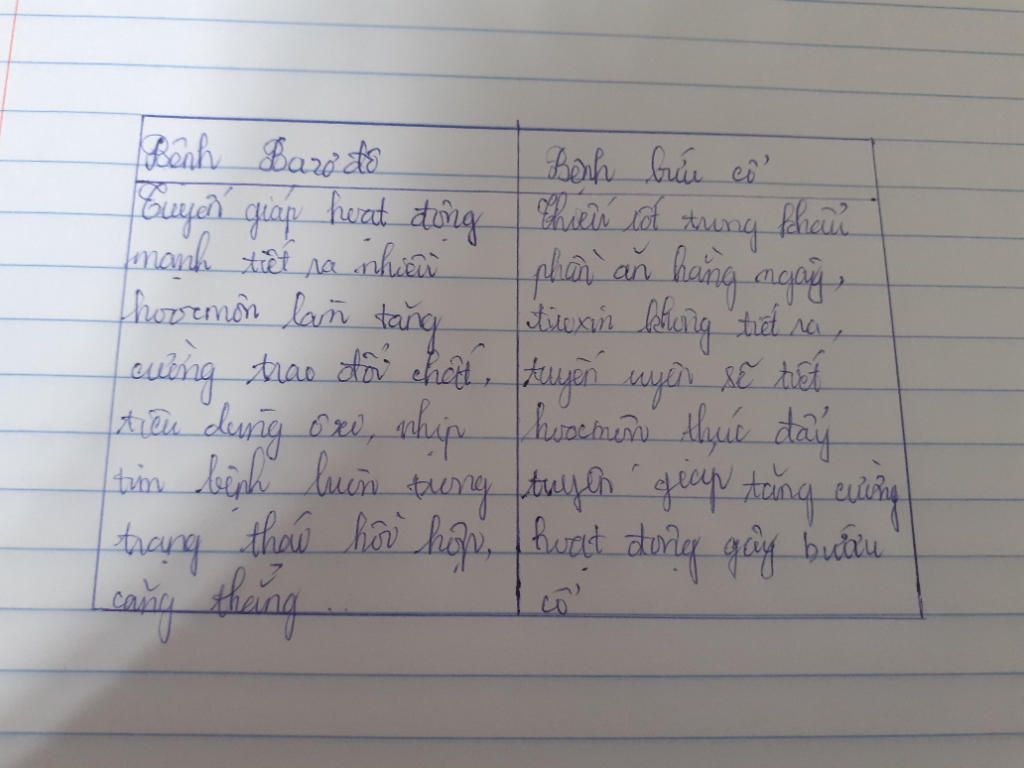 Bệnh Bazơđô
Tuyến giáp hoạt động
mạnh tiết ra nhiều
hoocmôn làm tăng
cường trao đổi chất,
tiêu dùng ôxi, nhịp
tim bệnh luôn trong
trạng thái hồi hộp,
căng thẳng ...
Bệnh bứu cổ
Thiếu iốt trong khẩu
phần ăn hằng ngày,
tiroxin không tiết ra,
tuyến uyên sẽ tiết
hoocmôn thúc đẩy
tuyến giáp tăng cường
hoạt động gây bướu
cổ